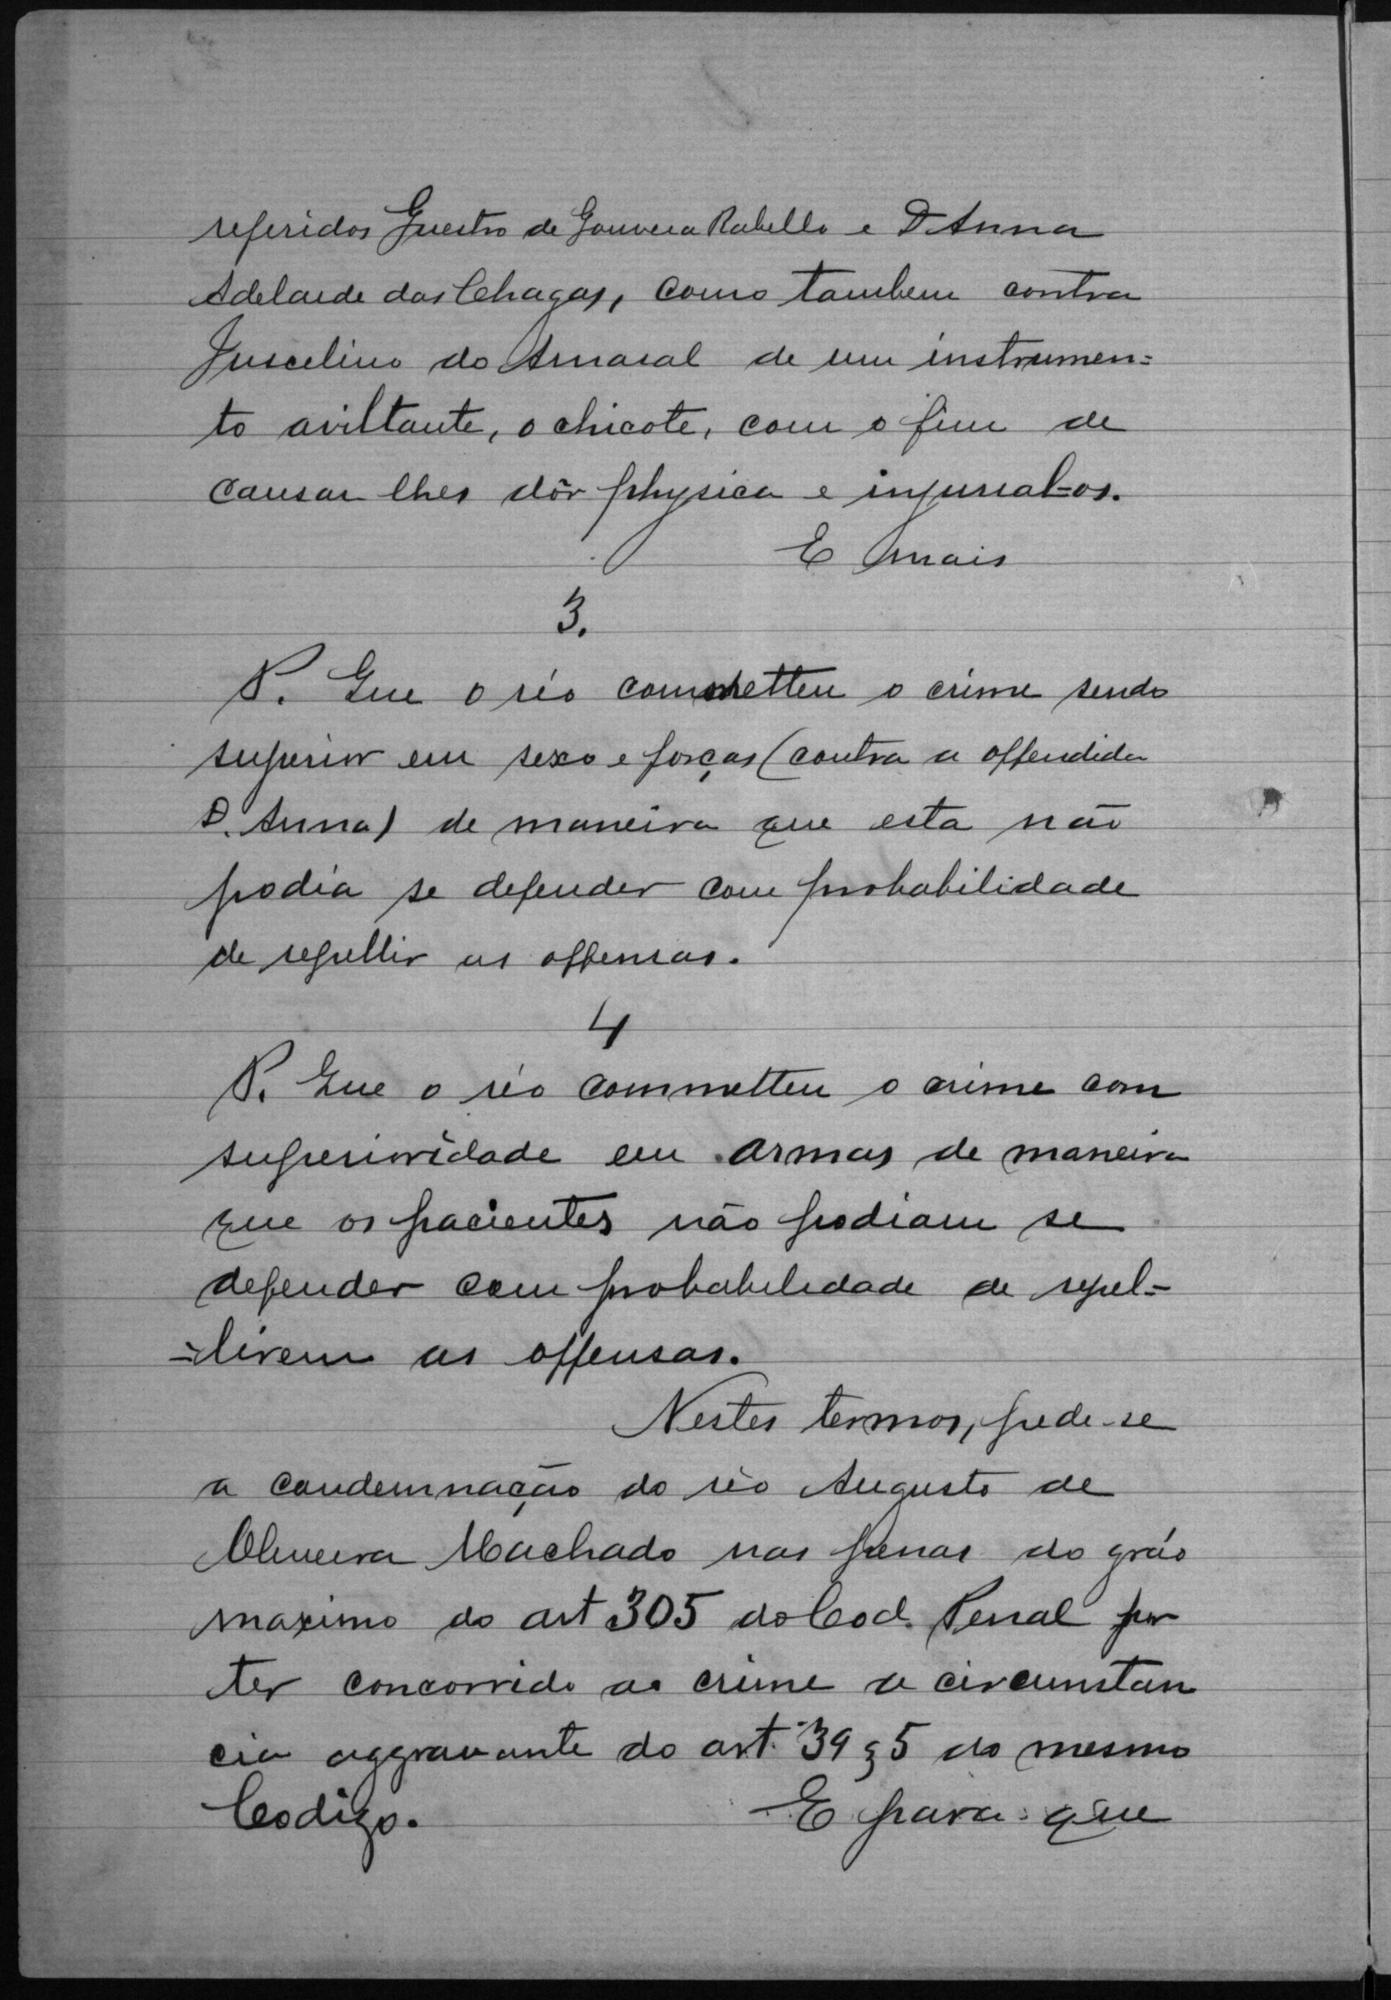 referidos Guestro de Gouveia Rabello e D Anna
Adelaide das Chagas, como tambem contra
Juscelino do Amaral de um instrumen=
to aviltante, o chicote, com o fim de
causar lhes dôr physica e injurial-os.
E mais
3.
P. Que o réo commetteu o crime sendo
superior em sexo e forças (contra a offendida
D. Anna) de maneira que esta não
podia se defender com probabilidade
de repellir as offensas.
4
P. Que o réo commetteu o crime com
superioridade em armas de maneira
que os pacientes não podiam se
defender com probabilidade de repel=
=lirem as offensas.
Nestes termos, pede-se
a condemnação do réo Augusto de
Oliveira Machado nas penas do gráo
maximo do art 305 do Cod. Penal por
ter concorrido ao crime a circumstan
cia aggravante do art. 39 § 5 do mesmo
Codigo. E para que